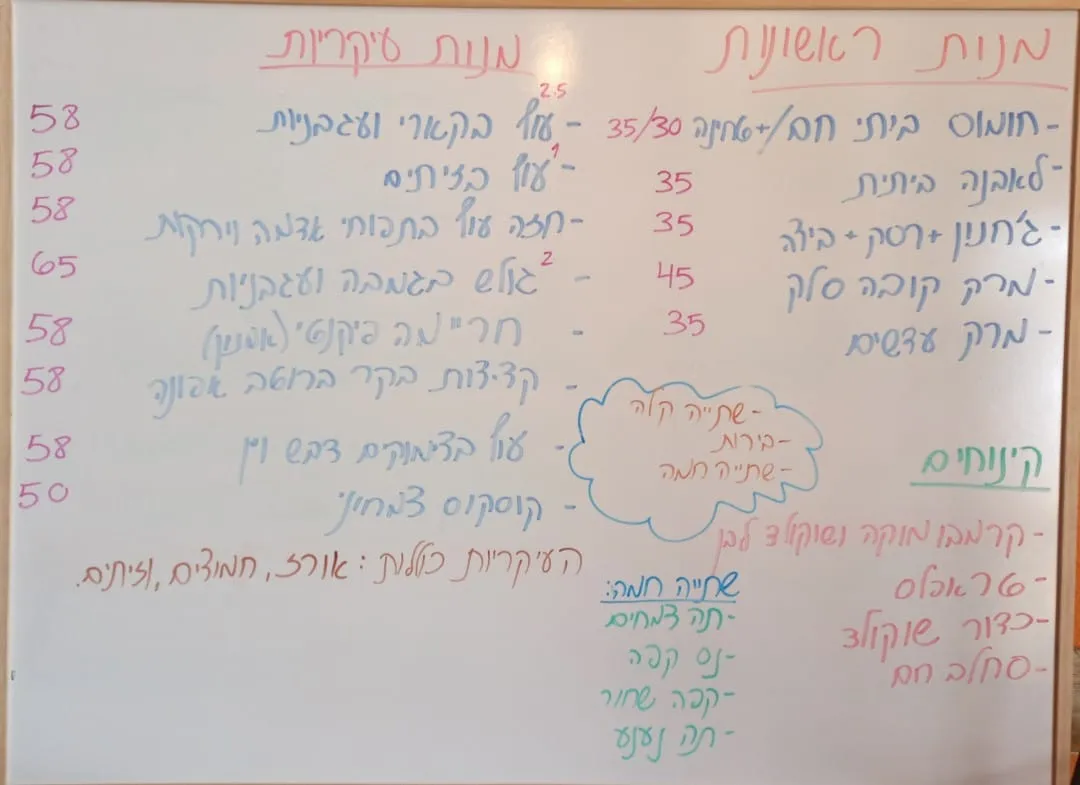 מנות ראשונות
-חומוס ביתי חם/+טחינה 35/30
-לאבנה ביתית 35
-ג'חנון+רסק+ביצה 35
-מרק קובה סלק 45
-מרק עדשים 35
מנות עיקריות
2.5
-עוף בקארי ועגבניות 58
1
-עוף בזיתים 58
-חזה עוף בתפוחי אדמה וירקות 58
2
-גולש בגמבה ועגבניות 65
-חריימה פיקנטי (אמנון) 58
-קציצות בקר ברוטב אפונה 58
-עוף בצימוקים דבש ויין 58
-קוסקוס צמחוני 50
העיקריות כוללות: אורז, חמוצים, וזיתים.
-שתייה קלה
-בירות
-שתייה חמה
קינוחים
-קרמבו מוקה ושוקולד לבן
-טראפלס
-כדור שוקולד
-סחלב חם
שתייה חמה:
-תה צמחים
-נס קפה
-קפה שחור
-תה נענע